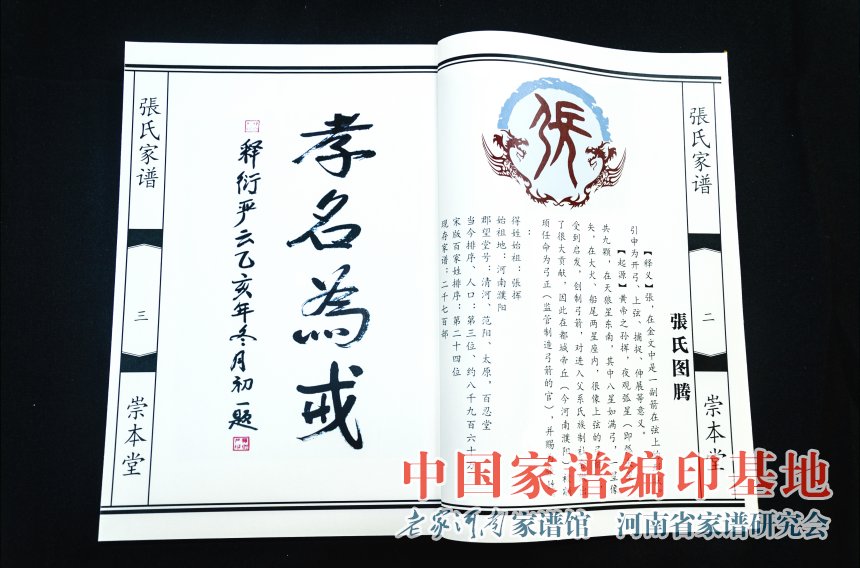 張氏家谱
二
崇本堂
張氏图腾
【释义】张，在金文中是一副箭在弦上
引申为开弓、上弦、捕捉、伸展等意义。
【起源】黄帝之孙挥，夜观弧星（即
共九颗，在天狼星东南，其中八星如满弓，
矢，在大火、船尾两星座内，很像上弦的弓
受到启发，创制弓箭，对进入父系氏族制社
了很大贡献，因此在都城帝丘（今河南濮阳）
顼任命为弓正（监管制造弓箭的官），并赐
：
得姓始祖：张挥
始祖地：河南濮阳
郡望堂号：清河、范阳、太原，百忍堂
当今排序、人口：第三位、约八千九百六十
宋版百家姓排序：第二十四位
现存家谱：二千七百部
孝名為戒
释衍严云乙亥年冬月初一题
張氏家谱
三
崇本堂
中国家谱编印基地
老家河南家谱馆 河南省家谱研究会